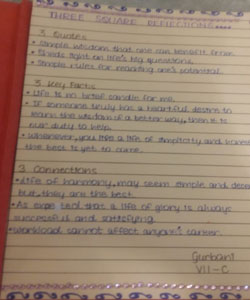 THREE SQUARE REFLECTIONS....
3 Quotes
• Simple wisdom that one can benefit from.
• Sheds light on life's big questions.
• Simple rules for reaching one's potential.
3 Key Facts
• Life is no brief candle for me.
• If someone truly has a heartful desire to
learn the wisdom of a better way, then it is
our duty to help.
• Whenever, you live a life of simplicity and
the best is yet to come.
3 Connections
• Life of harmony, may seem simple and
but they are the best.
• As expo tell that a life of glory is always
successful and satisfying.
• Workload cannot affect anyone's career.
Gurbani
VII-C